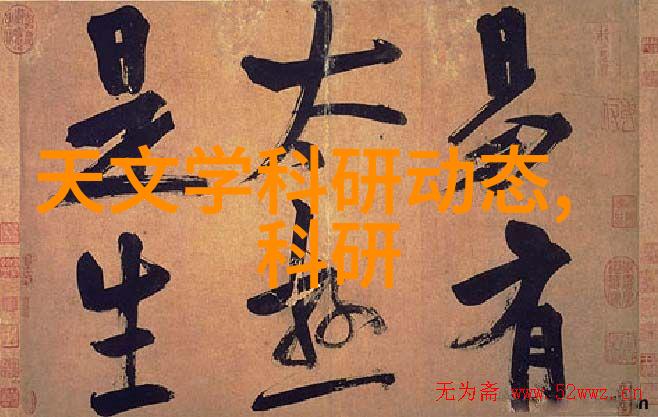 易有
太極
是生
天文学科研动态,
科研
无为斋 www.52wwz.cn